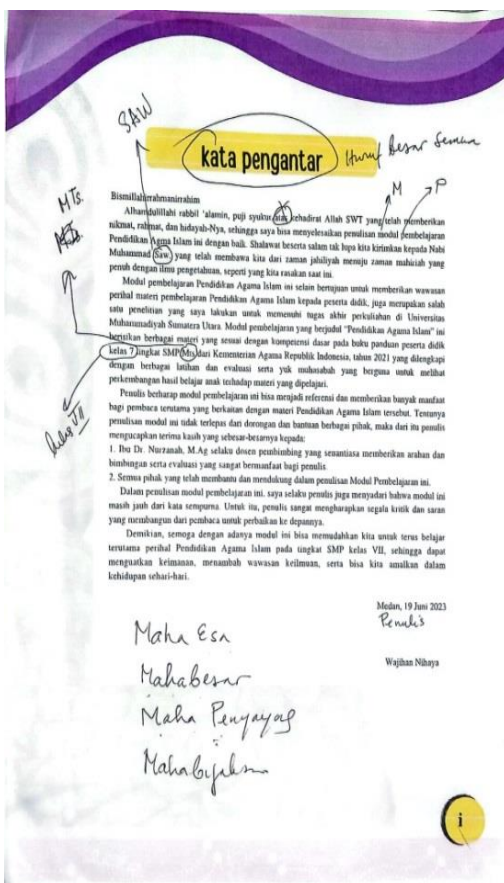 SAW
kata pengantar
Huruf Besar Semua
MTs.
M
P
Bismillahirrahmanirrahim
Alhamdulillahi rabbil 'alamin, puji syukur atas kehadirat Allah SWT yang telah memberikan
nikmat, rahmat, dan hidayah-Nya, sehingga saya bisa menyelesaikan penulisan modul pembelajaran
Pendidikan Agma Islam ini dengan baik. Shalawat beserta salam tak lupa kita kirimkan kepada Nabi
Muhammad Saw yang telah membawa kita dari zaman jahiliyah menuju zaman mahiriah yang
penuh dengan ilmu pengetahuan, seperti yang kita rasakan saat ini.
Modul pembelajaran Pendidikan Agama Islam ini selain bertujuan untuk memberikan wawasan
perihal materi pembelajaran Pendidikan Agama Islam kepada peserta didik, juga merupakan salah
satu penelitian yang saya lakukan untuk memenuhi tugas akhir perkuliahan di Universitas
Muhammadiyah Sumatera Utara. Modul pembelajaran yang berjudul "Pendidikan Agama Islam" ini
berisikan berbagai materi yang sesuai dengan kompetensi dasar pada buku panduan peserta didik
kelas 7 tingkat SMP/Mts dari Kementerian Agama Republik Indonesia, tahun 2021 yang dilengkapi
dengan berbagai latihan dan evaluasi serta yuk muhasabah yang berguna untuk melihat
perkembangan hasil belajar anak terhadap materi yang dipelajari.
kelas VII
Penulis berharap modul pembelajaran ini bisa menjadi referensi dan memberikan banyak manfaat
bagi pembaca terutama yang berkaitan dengan materi Pendidikan Agama Islam tersebut. Tentunya
penulisan modul ini tidak terlepas dari dorongan dan bantuan berbagai pihak, maka dari itu penulis
mengucapkan terima kasih yang sebesar-besarnya kepada:
1. Ibu Dr. Nurzanah, M.Ag selaku dosen pembimbing yang senantiasa memberikan arahan dan
bimbingan serta evaluasi yang sangat bermanfaat bagi penulis.
2. Semua pihak yang telah membantu dan mendukung dalam penulisan Modul Pembelajaran ini.
Dalam penulisan modul pembelajaran ini. saya selaku penulis juga menyadari bahwa modul ini
masih jauh dari kata sempurna. Untuk itu, penulis sangat mengharapkan segala kritik dan saran
yang membangun dari pembaca untuk perbaikan ke depannya.
Demikian, semoga dengan adanya modul ini bisa memudahkan kita untuk terus belajar
terutama perihal Pendidikan Agama Islam pada tingkat SMP kelas VII, sehingga dapat
menguatkan keimanan, menambah wawasan keilmuan, serta bisa kita amalkan dalam
kehidupan sehari-hari.
Medan, 19 Juni 2023
Penulis
Wajihan Nihaya
Maha Esa
Mahabesar
Maha Penyayang
Mahabijaksana
i